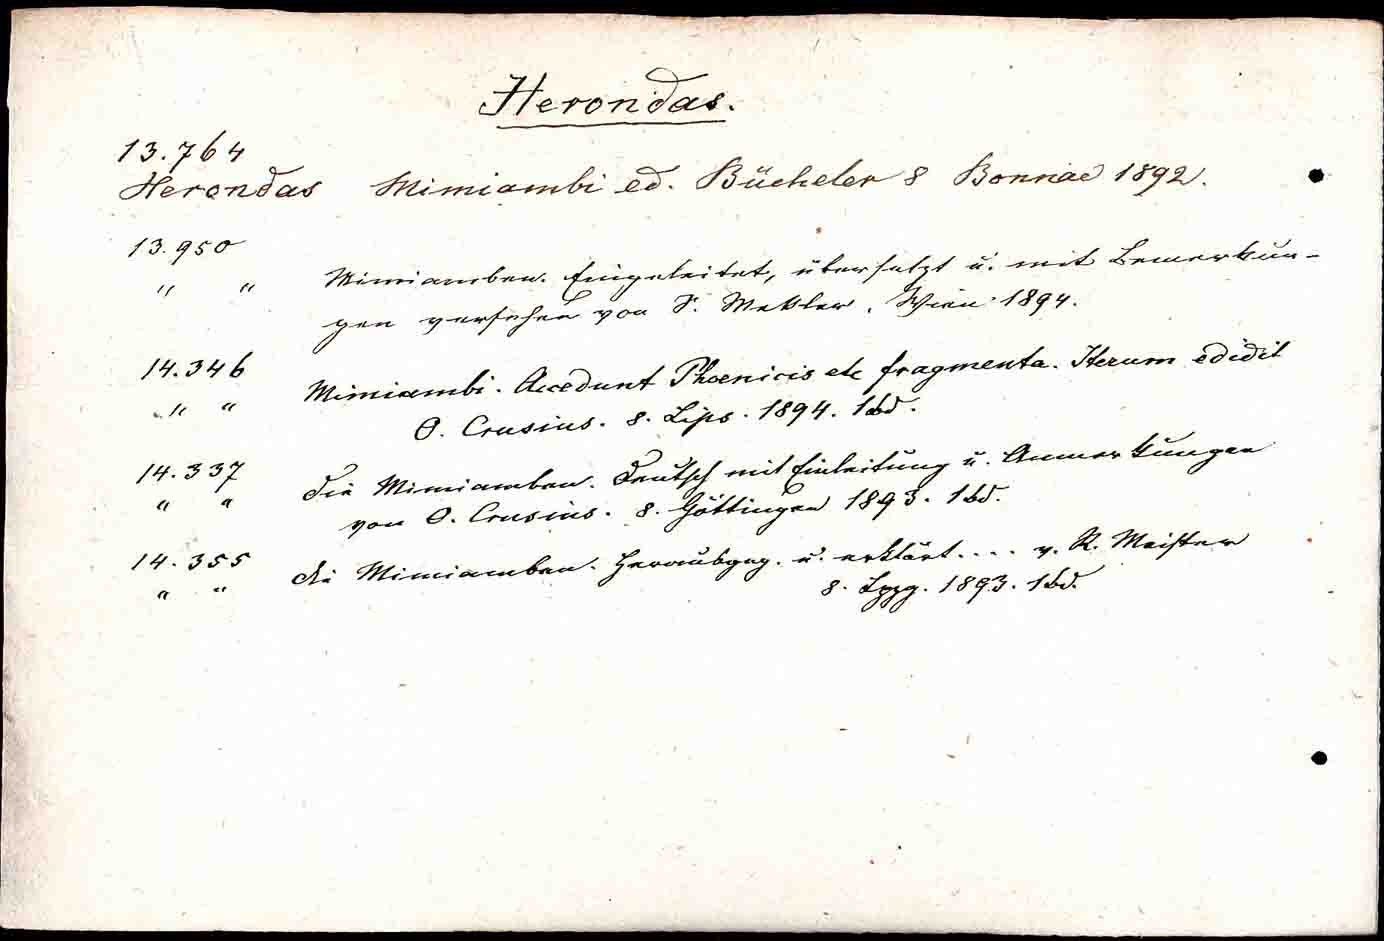 Herondas.
13.764
Herondas Mimiambi ed. Bücheler 8 Bonnae 1892.
13.950
" " Mimiamben. Eingeleitet, übersetzt u. mit Bemerkun-
gen versehen von S. Mekler. Wien 1894.
14.346
" " Mimiambi. Accedunt Phoenicis etc fragmenta. Iterum edidit
O. Crusius. 8. Lips. 1894. 1bd.
14.337
" " Die Mimiamben. Deutsch mit Einleitung u. Anmerkungen
von O. Crusius. 8. Göttingen 1893. 1bd.
14.355
" " Die Mimiamben. Herausgeg. u. erklärt.... v. R. Meister
8. Lpzg. 1893. 1bd.